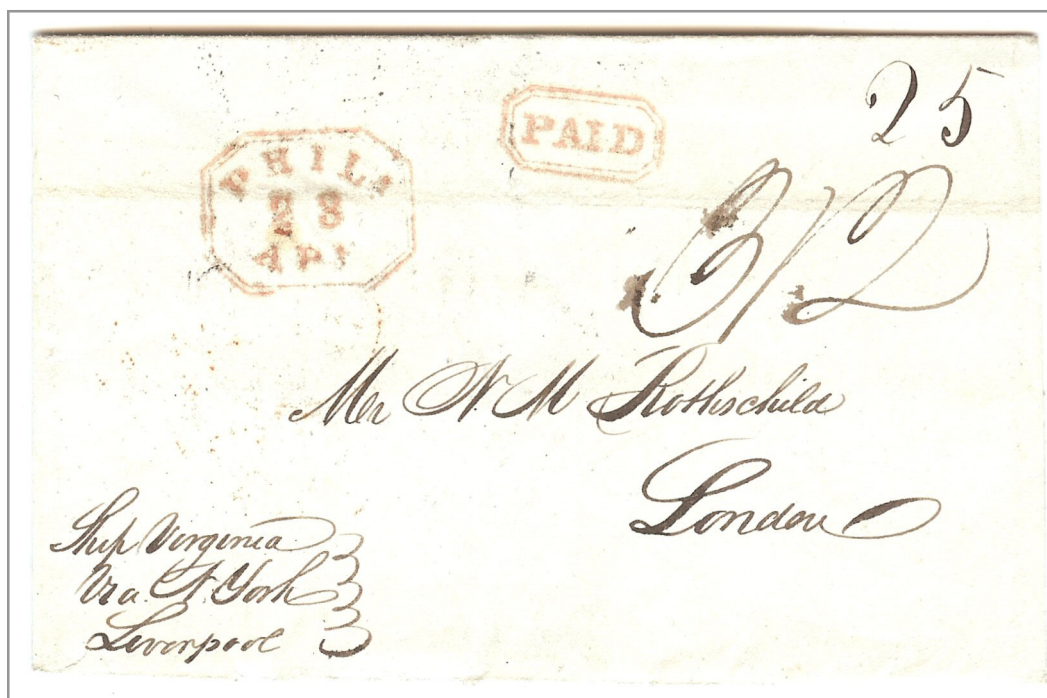 25
PAID
PHILA
23
APR
3/2
Mr N. M Rothschild
London
Ship Virginia
Via N. York
Liverpool